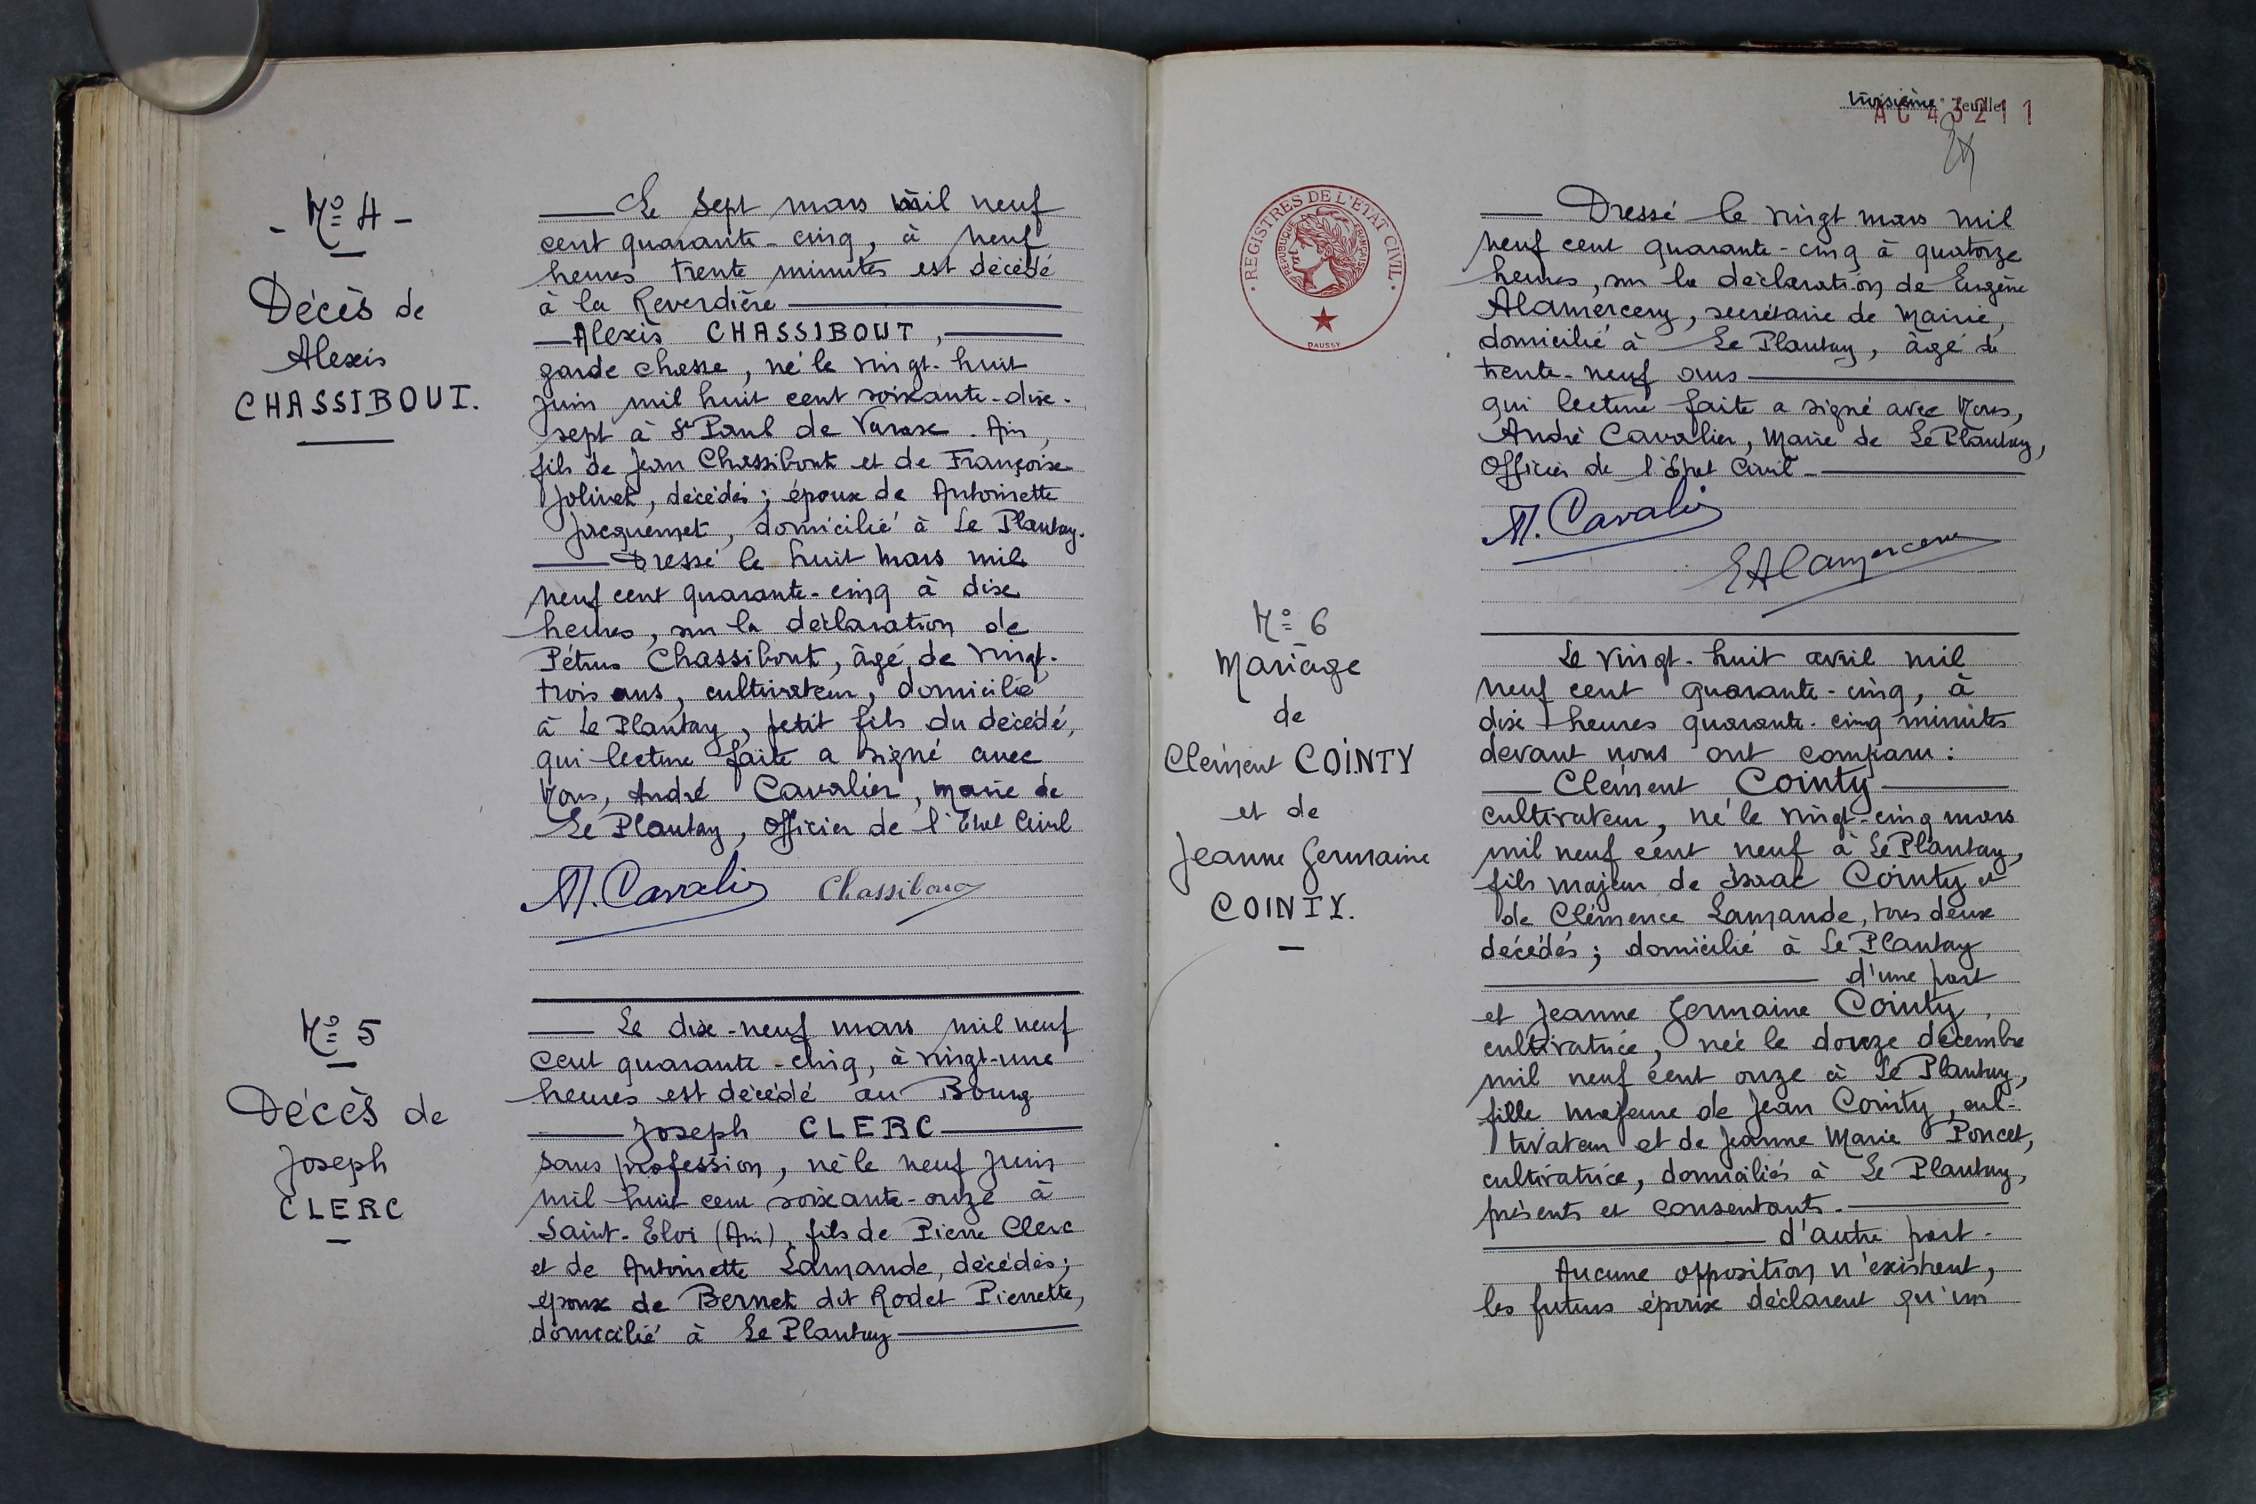 - Nº 4 -
Décès de
Alexis
CHASSIBOUT.
Le sept mars mil neuf
cent quarante-cinq, à neuf
heures trente minutes est décédé
à la Reverdière
Alexis CHASSIBOUT,
garde chasse, né le vingt-huit
juin mil huit cent soixante-dix-
sept à St Paul de Varax. Ain,
fils de Jean Chassibout et de Françoise
Jolivet, décédés; époux de Antoinette
Jacquemet, domicilié à Le Plantay.
Dressé le huit mars mil
neuf cent quarante-cinq à dix
heures, sur la déclaration de
Pétrus Chassibout, âgé de vingt-
trois ans, cultivateur, domicilié
à Le Plantay, petit fils du décédé,
qui lecture faite a signé avec
Nous, André Cavalier, maire de
Le Plantay, Officier de l'Etat Civil
A. Cavalier Chassibout
Nº 5
Décès de
Joseph
CLERC
Le dix-neuf mars mil neuf
cent quarante-cinq, à vingt-une
heures est décédé au Bourg
Joseph CLERC
sans profession, né le neuf juin
mil huit cent soixante-onze à
Saint-Eloi (Ain), fils de Pierre Clerc
et de Antoinette Lamande, décédés;
époux de Bernet dit Rodet Pierrette,
domicilié à Le Plantay
troisième feuillet
AC 43211
REGISTRES DE L'ETAT CIVIL
REPUBLIQUE FRANÇAISE
DAUSSY
Dressé le vingt mars mil
neuf cent quarante-cinq à quatorze
heures, sur la déclaration de Eugène
Alamercery, secrétaire de Mairie,
domicilié à Le Plantay, âgé de
trente-neuf ans
qui lecture faite a signé avec Nous,
André Cavalier, Maire de Le Plantay,
Officier de l'Etat Civil
A. Cavalier
E Alamercery
Nº 6
Mariage
de
Clément COINTY
et de
Jeanne Germaine
COINTY.
Le vingt-huit avril mil
neuf cent quarante-cinq, à
dix heures quarante-cinq minutes
devant nous ont comparu:
Clément Cointy
cultivateur, né le vingt-cinq mars
mil neuf cent neuf à Le Plantay,
fils majeur de Isaac Cointy et
de Clémence Lamande, tous deux
décédés; domicilié à Le Plantay
d'une part
et Jeanne Germaine Cointy,
cultivatrice, née le douze décembre
mil neuf cent onze à Le Plantay,
fille majeure de Jean Cointy, cul-
tivateur et de Jeanne Marie Poncet,
cultivatrice, domiciliés à Le Plantay,
présents et consentants.
d'autre part.
Aucune opposition n'existant,
les futurs époux déclarent qu'un